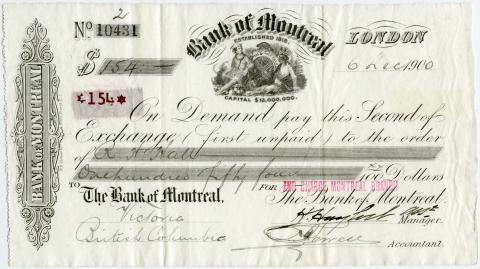 2
No 10431
Bank of Montreal
ESTABLISHED 1818.
CAPITAL $12,000,000.
LONDON
6 Dec 1900
$ 154
BANK OF MONTREAL
£154
On Demand pay this Second of
Exchange (first unpaid) to the order
of R. H. Hall
One hundred fifty four xx/100 Dollars
TO The Bank of Montreal,
FOR The Bank of Montreal.
Victoria
British Columbia
Manager.
Accountant.